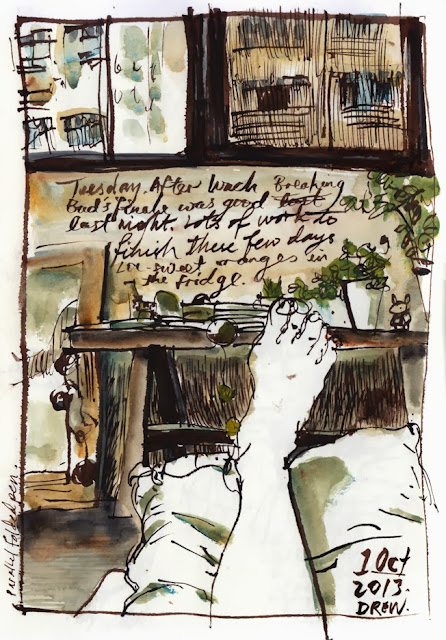 Tuesday. After lunch Breaking
Bad's finale was good last
last night. Lots of work to
finish these few days
Ice-sweet oranges in
the fridge.
1 Oct
2013.
DREW.
Parallel folded pen.